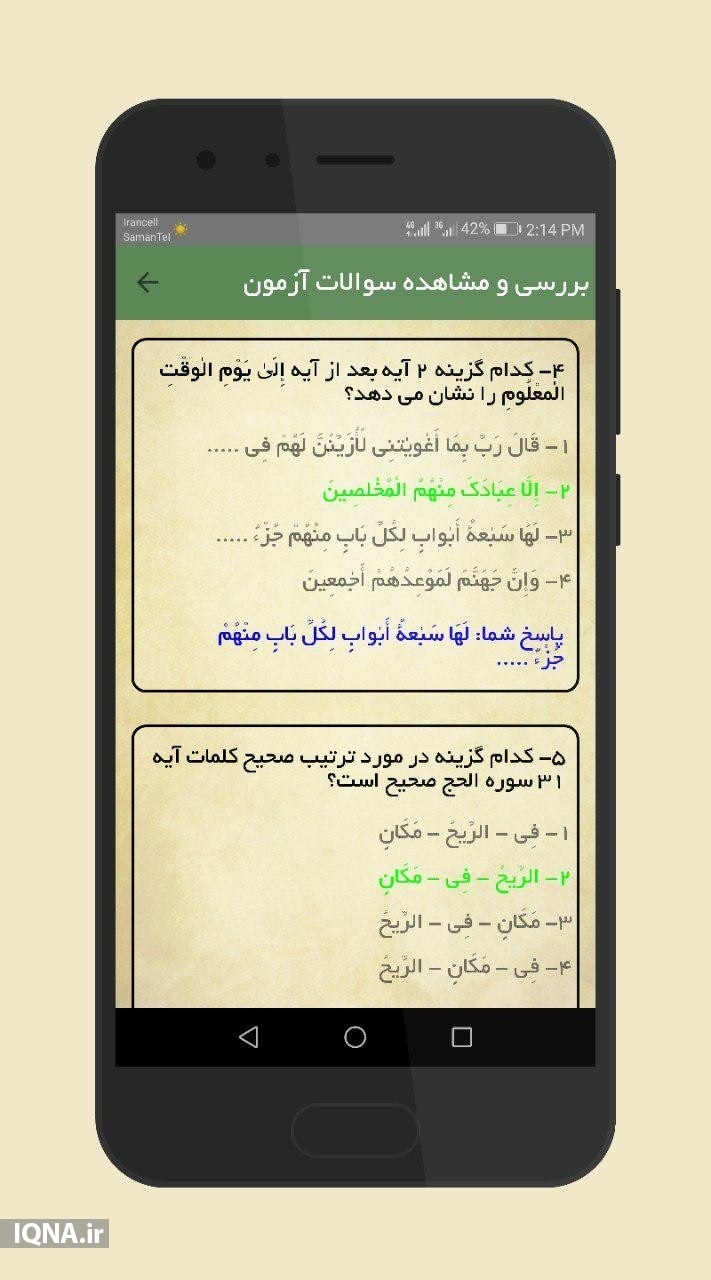 Irancell
SamanTel
4G 3G 42% 2:14 PM
بررسی و مشاهده سوالات آزمون
۴- کدام گزینه ۲ آیه بعد از آیه إِلَىٰ يَوْمِ الْوَقْتِ
الْمَعْلُومِ را نشان می دهد؟
۱- قَالَ رَبِّ بِمَا أَغْوَيْتَنِی لَأُزَيِّنَنَّ لَهُمْ فِی .....
۲- إِلَّا عِبَادَکَ مِنْهُمُ الْمُخْلَصِينَ
۳- لَهَا سَبْعَةُ أَبْوَابٍ لِکُلِّ بَابٍ مِنْهُمْ جُزْءٌ .....
۴- وَإِنَّ جَهَنَّمَ لَمَوْعِدُهُمْ أَجْمَعِينَ
پاسخ شما: لَهَا سَبْعَةُ أَبْوَابٍ لِکُلِّ بَابٍ مِنْهُمْ
جُزْءٌ .....
۵- کدام گزینه در مورد ترتیب صحیح کلمات آیه
۳۱ سوره الحج صحیح است؟
۱- فِی - الرِّيحُ - مَکَانٍ
۲- الرِّيحُ - فِی - مَکَانٍ
۳- مَکَانٍ - فِی - الرِّيحُ
۴- فِی - مَکَانٍ - الرِّيحُ
IQNA.ir